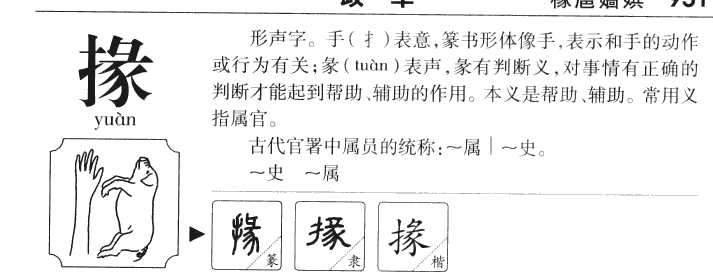 掾
yuàn
形声字。手(扌)表意,篆书形体像手,表示和手的动作
或行为有关;彖(tuàn)表声,彖有判断义,对事情有正确的
判断才能起到帮助、辅助的作用。本义是帮助、辅助。常用义
指属官。
古代官署中属员的统称:～属｜～史。
～史 ～属
掾 篆 掾 隶 掾 楷